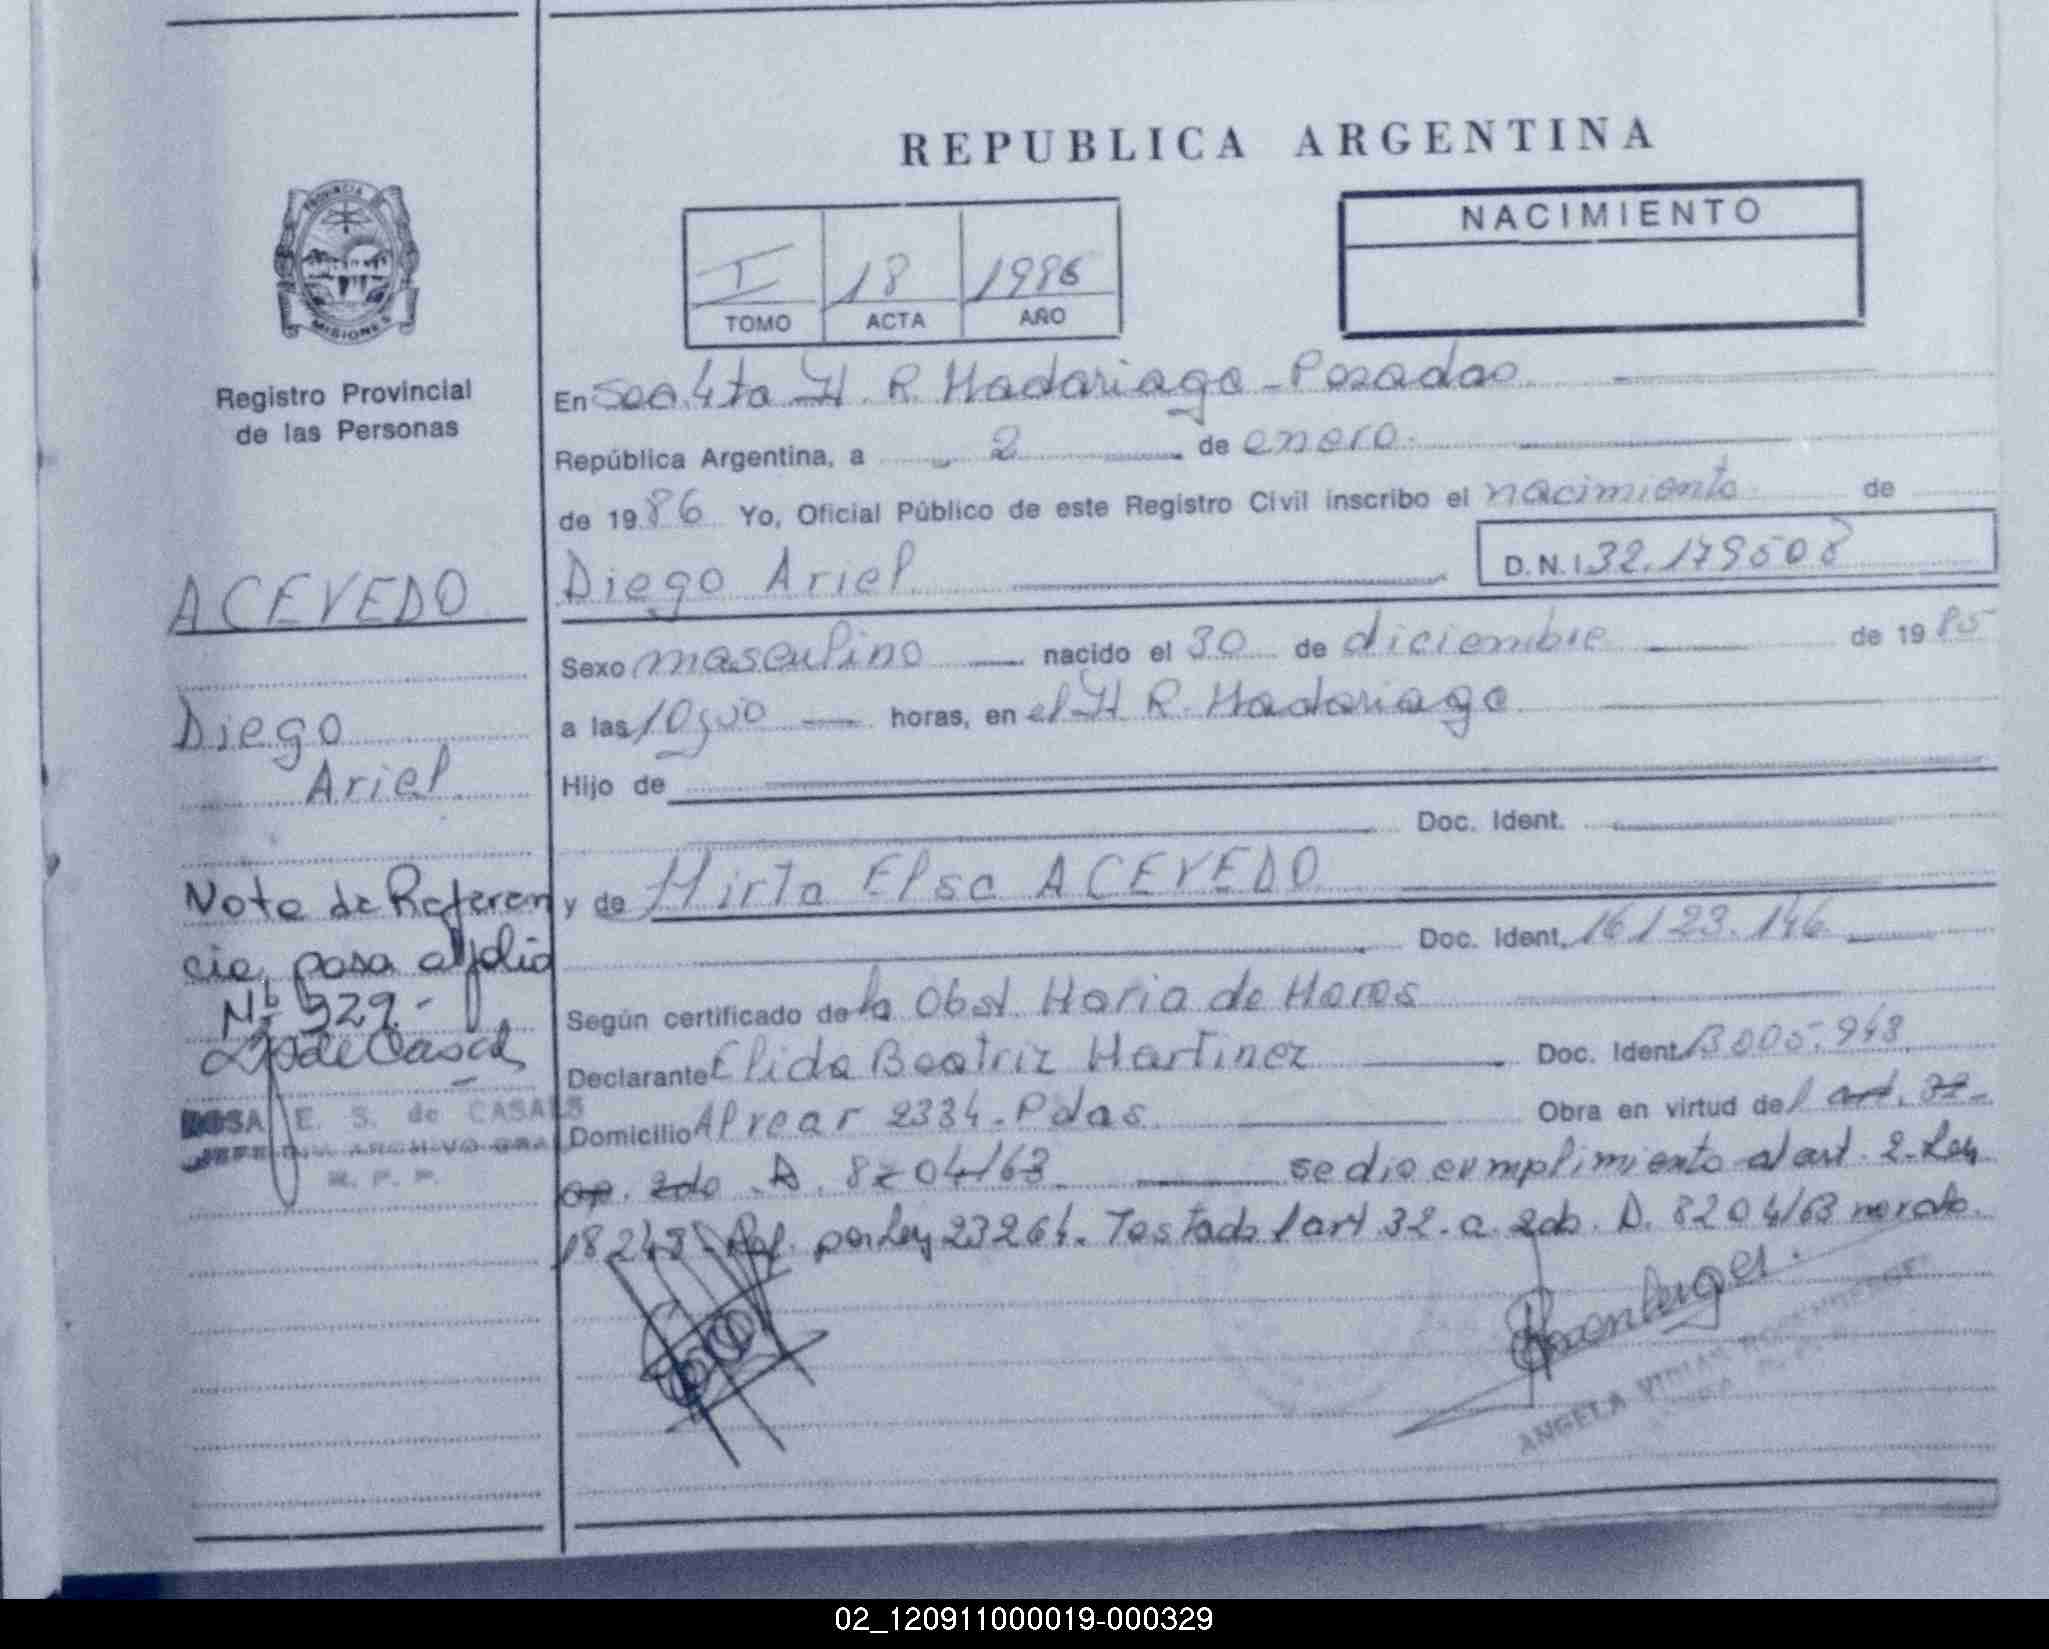 REPUBLICA ARGENTINA
NACIMIENTO
I 18 1986
TOMO ACTA AÑO
PROVINCIA
MISIONES
Registro Provincial
de las Personas
ACEVEDO
Diego
Ariel
Note de Referen
cia pasa al folio
Nº 329-
ROSA E. S. de CASALS
JEFE DIV. ARCHIVO GRAL
R. P. P.
En Sec. 4ta H. R. Madariaga - Posadas
República Argentina, a 2 de enero
de 1986 Yo, Oficial Público de este Registro Civil inscribo el nacimiento de
Diego Ariel D.N.I 32.179508
Sexo masculino nacido el 30 de diciembre de 1985
a las 10,30 horas, en el H R. Madariaga
Hijo de
Doc. Ident.
y de Mirta Elsa ACEVEDO
Doc. Ident. 16123.146
Según certificado de la Obst. Maria de Haros
Declarante Elida Beatriz Martinez Doc. Ident. 13005.948
Domicilio Alvear 2334 - Pdas Obra en virtud del art. 32-
ap. 2do D. 8204/63 se dio cumplimiento al art. 2-Ley
18248- Ref. por Ley 23264. Testado l art 32- a. 2do. D. 8204/63 no vale.
ANGELA
02_120911000019-000329